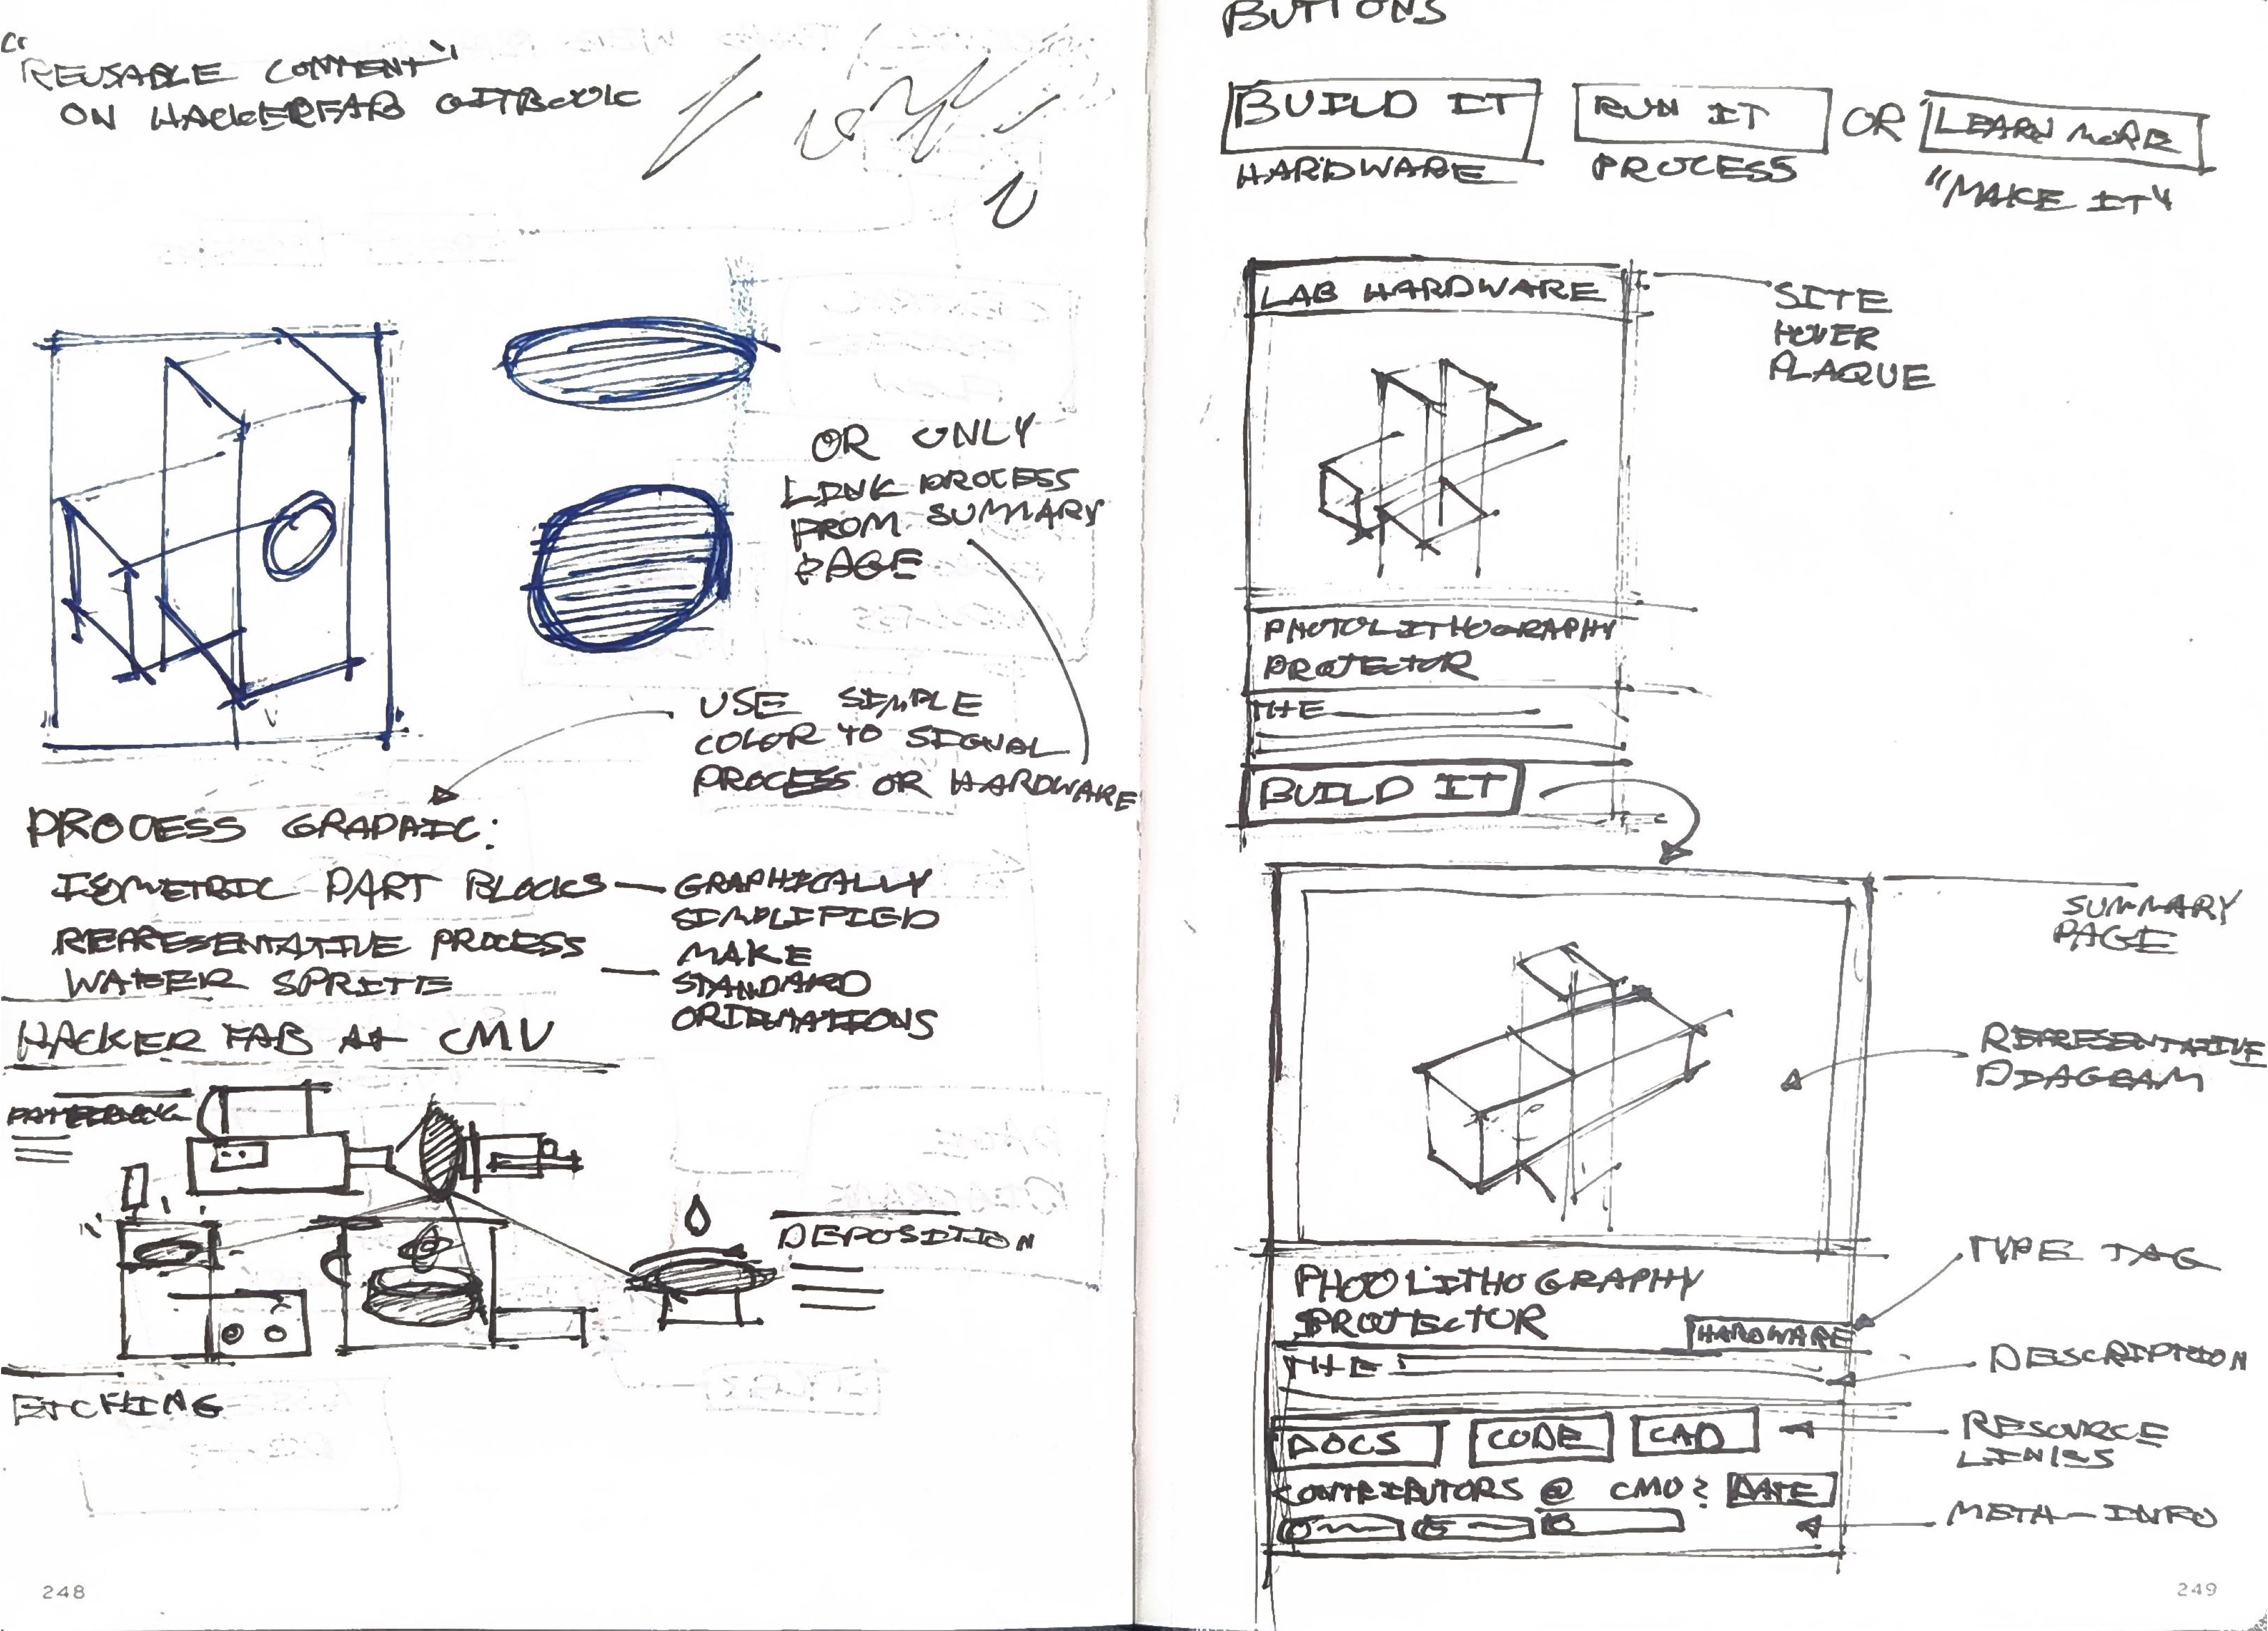 "REUSABLE CONTENT"
ON HACKERFAB GITBOOK
OR ONLY
LINK PROCESS
FROM SUMMARY
PAGE
USE SIMPLE
COLOR TO SIGNAL
PROCESS OR HARDWARE
PROCESS GRAPHIC:
ISOMETRIC PART BLOCKS — GRAPHICALLY
SIMPLIFIED
REPRESENTATIVE PROCESS
WAFER SPRITE — MAKE
STANDARD
ORIENTATIONS
HACKER FAB At CMU
PATTERNING
DEPOSITION
ETCHING
248
BUTTONS
BUILD IT
HARDWARE
RUN IT
PROCESS
OR
LEARN MORE
"MAKE IT"
LAB HARDWARE
SITE
HOVER
PLAQUE
PHOTOLITHOGRAPHY
PROJECTOR
THE
BUILD IT
SUMMARY
PAGE
REPRESENTATIVE
DIAGRAM
TYPE TAG
PHOOLITHOGRAPHY
PROJECTOR
HARDWARE
THE
DESCRIPTION
DOCS
CODE
CAD
RESOURCE
LINKS
CONTRIBUTORS @ CMU:
DATE
META-INFO
249